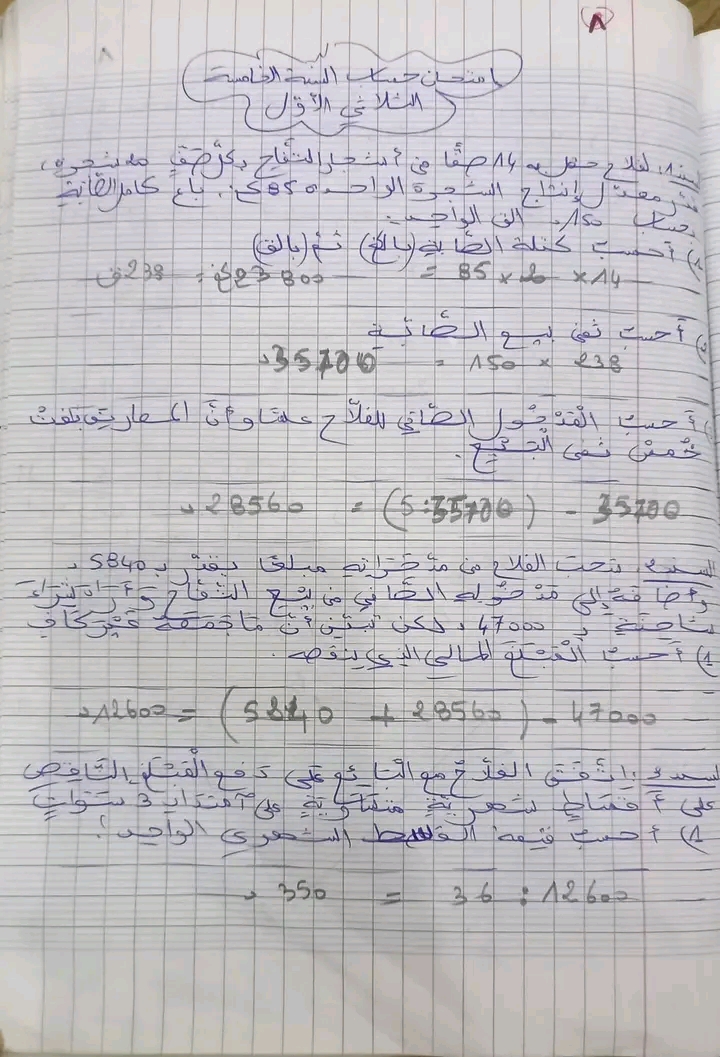 امتحان حساب السنة الخامسة
الثلاثي الأوّل
سند 1. لفلاح حقل به 14 صفّا من أشجار التفّاح بكلّ صفّ
معدّل إنتاج الشجرة الواحدة 85 كغ. باع كامل الصّابة
بحساب 150د القنطار الواحد.
1) أحسب كتلة الصّابة (بالكغ) ثمّ (بالق)
14 × 20 × 85 = 23800 كغ = 238 ق
2) أحسب ثمن بيع الصّابة
238 × 150 = 35700د
3) أحسب المدخول الصّافي للفلّاح علما وأنّ المصاريف بلغت
خمس ثمن البيع.
35700 - (35700 : 5) = 28560د
السند 2. سحب الفلاح من مدّخراته مبلغا يقدّر بـ 5840د
وأضافه إلى مدخوله الصّافي من بيع التفّاح وأراد شراء
شاحنة بـ 47000د لكن تبيّن أنّ ما جمعه غير كاف
1) أحسب المبلغ المالي الذي ينقصه.
47000 - (28560 + 5840) = 12600د
سند 3: اتّفق الفلّاح مع البائع على دفع المبلغ النّاقص
على أقساط شهريّة متساوية على امتداد 3 سنوات
1) أحسب قيمة القسط الشهري الواحد؟
12600 : 36 = 350د